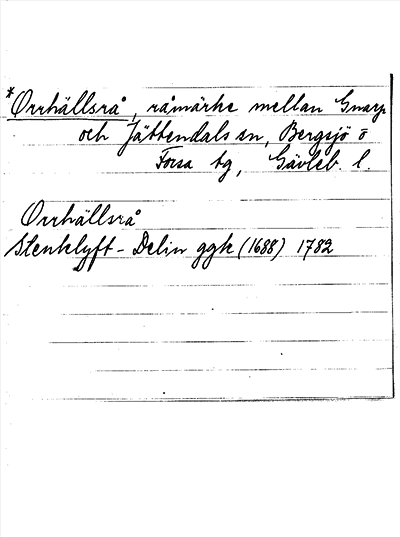 *Orrhällsrå, råmärke mellan Gnarps
och Jättendals sn, Bergsjö o
Forsa tg, Gävleb. l.
Orrhällsrå
Stenklyft-Delin ggk (1688) 1782